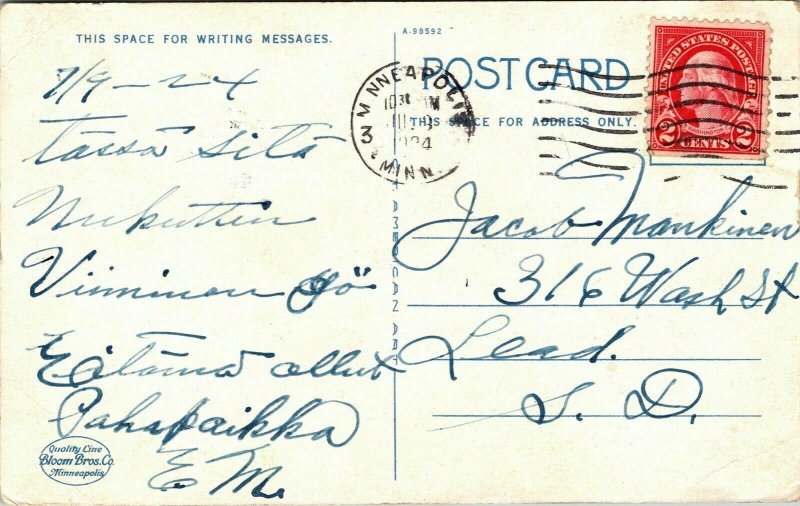 THIS SPACE FOR WRITING MESSAGES.
7/9-24
Tässä sitä
Nukuttiin
Viiminen yö
Eitämä ollut
Pahapaikka
E M.
Quality Line
Bloom Bros. Co.
Minneapolis
A-98592
POST CARD
THIS SPACE FOR ADDRESS ONLY.
MINNEAPOLIS
MINN.
3
1924
UNITED STATES POSTAGE
WASHINGTON
2 CENTS 2
AMERICAN ART
Jacob Mankinen
316 Wash St
Lead.
S. D.